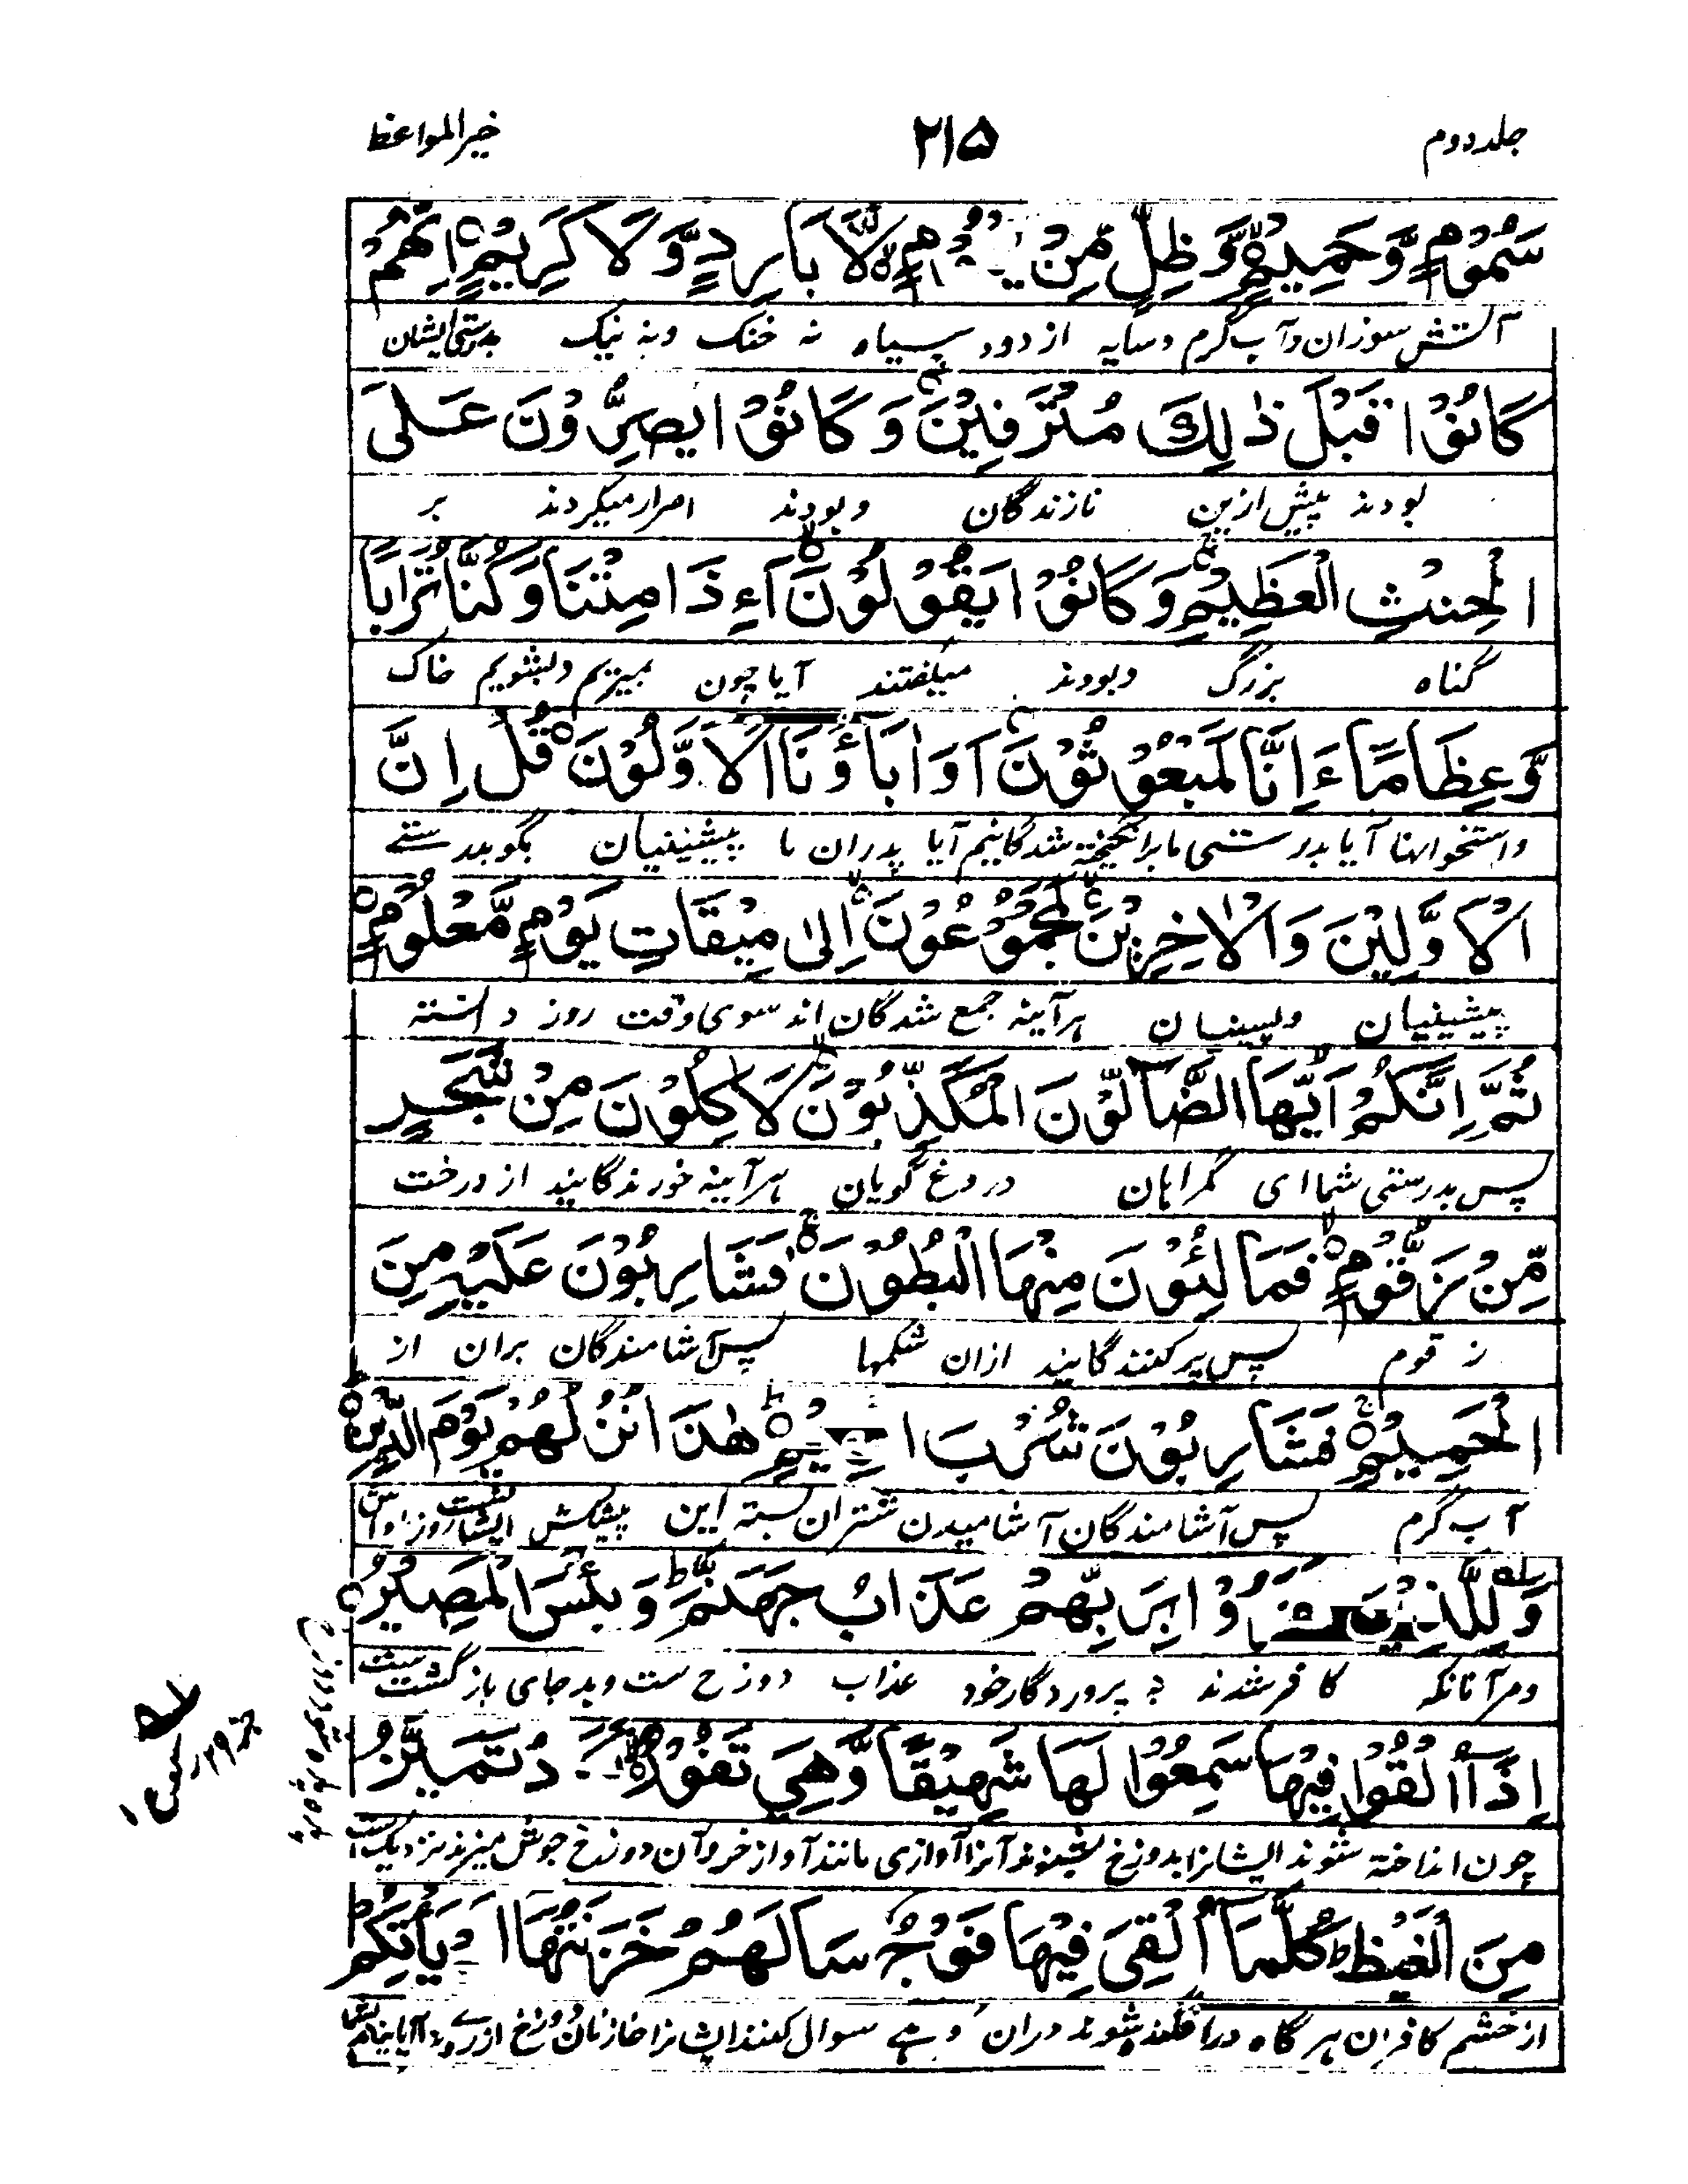 جلد دوم ۲۱۵ خیر المواعظ
سَمُوْمٍ وَّحَمِیْمٍ وَّظِلٍّ مِّنْ لَّا بَارِدٍ وَّلَا كَرِیْمٍ اِنَّهُمْ
آتش سوزان و آب گرم و سایه از دود سیاه نه خنک و نه نیک بدرستی ایشان
كَانُوْا قَبْلَ ذٰلِكَ مُتْرَفِیْنَ وَكَانُوْا یُصِرُّوْنَ عَلَى
بودند پیش ازین نازندگان و بودند اصرار میکردند بر
الْحِنْثِ الْعَظِیْمِ وَكَانُوْا یَقُوْلُوْنَ اَءِذَا مِتْنَا وَكُنَّا تُرَابًا
گناه بزرگ و بودند میگفتند آیا چون بمیریم و بشویم خاک
وَّعِظَامًا ءَاِنَّا لَمَبْعُوْثُوْنَ اَوَاٰبَاؤُنَا الْاَوَّلُوْنَ قُلْ اِنَّ
و استخوانها آیا بدرستی ما برانگیخته شدگانیم آیا پدران ما پیشینیان بگو بدرستے
الْاَوَّلِیْنَ وَالْاٰخِرِیْنَ لَمَجْمُوْعُوْنَ اِلٰى مِیْقَاتِ یَوْمٍ مَّعْلُوْمٍ
پیشینیان و پسینیان هر آینه جمع شدگان اند سوی وقت روز دانسته
ثُمَّ اِنَّكُمْ اَیُّهَا الضَّآلُّوْنَ الْمُكَذِّبُوْنَ لَاٰكِلُوْنَ مِنْ شَجَرٍ
پس بدرستی شما ای گمراهان دروغ گویان هر آینه خورندگانید از درخت
مِّنْ زَقُّوْمٍ فَمَالِئُوْنَ مِنْهَا الْبُطُوْنَ فَشَارِبُوْنَ عَلَیْهِ مِنَ
زقوم پس پر کنندگانید ازان شکمها پس آشامندگان بران از
الْحَمِیْمِ فَشَارِبُوْنَ شُرْبَ الْهِیْمِ هٰذَا نُزُلُهُمْ یَوْمَ الدِّیْنِ
آب گرم پس آشامندگان آشامیدن شتران تشنه این پیشکش ایشانست روز
وَلِلَّذِیْنَ كَفَرُوْا بِرَبِّهِمْ عَذَابُ جَهَنَّمَ وَبِئْسَ الْمَصِیْرُ
و مر آنانکه کافر شدند به پروردگار خود عذاب دوزخ ست و بد جای بازگشت ست
اِذَآ اُلْقُوْا فِیْهَا سَمِعُوْا لَهَا شَهِیْقًا وَّهِیَ تَفُوْرُ تَكَادُ تَمَیَّزُ
چون انداخته شوند ایشانرا بدوزخ بشنوند آنرا آوازی مانند آواز خر و آن دوزخ جوش میزند نزدیک ست
مِنَ الْغَیْظِ كُلَّمَآ اُلْقِیَ فِیْهَا فَوْجٌ سَاَلَهُمْ خَزَنَتُهَا اَلَمْ یَأْتِكُمْ
از خشم کافران هر گاه در افگنده شوند دران سوال کنند ایشانرا خازنان دوزخ از